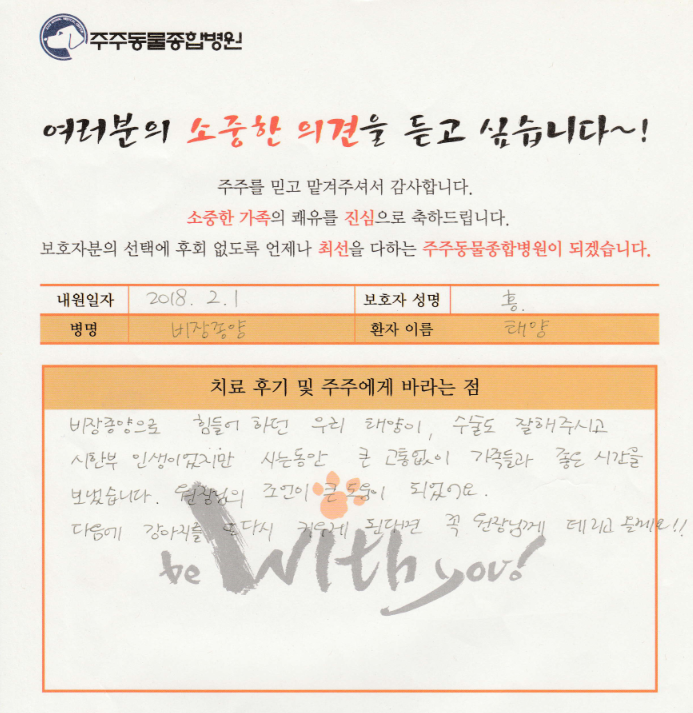 주주동물종합병원
여러분의 소중한 의견을 듣고 싶습니다~!
주주를 믿고 맡겨주셔서 감사합니다.
소중한 가족의 쾌유를 진심으로 축하드립니다.
보호자분의 선택에 후회 없도록 언제나 최선을 다하는 주주동물종합병원이 되겠습니다.
내원일자 2018. 2. 1 보호자 성명 홍.
병명 비장종양 환자 이름 태양
치료 후기 및 주주에게 바라는 점
비장종양으로 힘들어 하던 우리 태양이, 수술도 잘해주시고
시한부 인생이었지만 사는동안 큰 고통없이 가족들과 좋은 시간을
보냈습니다. 원장님의 조언이 큰 도움이 되었어요.
다음에 강아지를 또다시 키우게 된다면 꼭 원장님께 데리고 올께요!!
be With you!